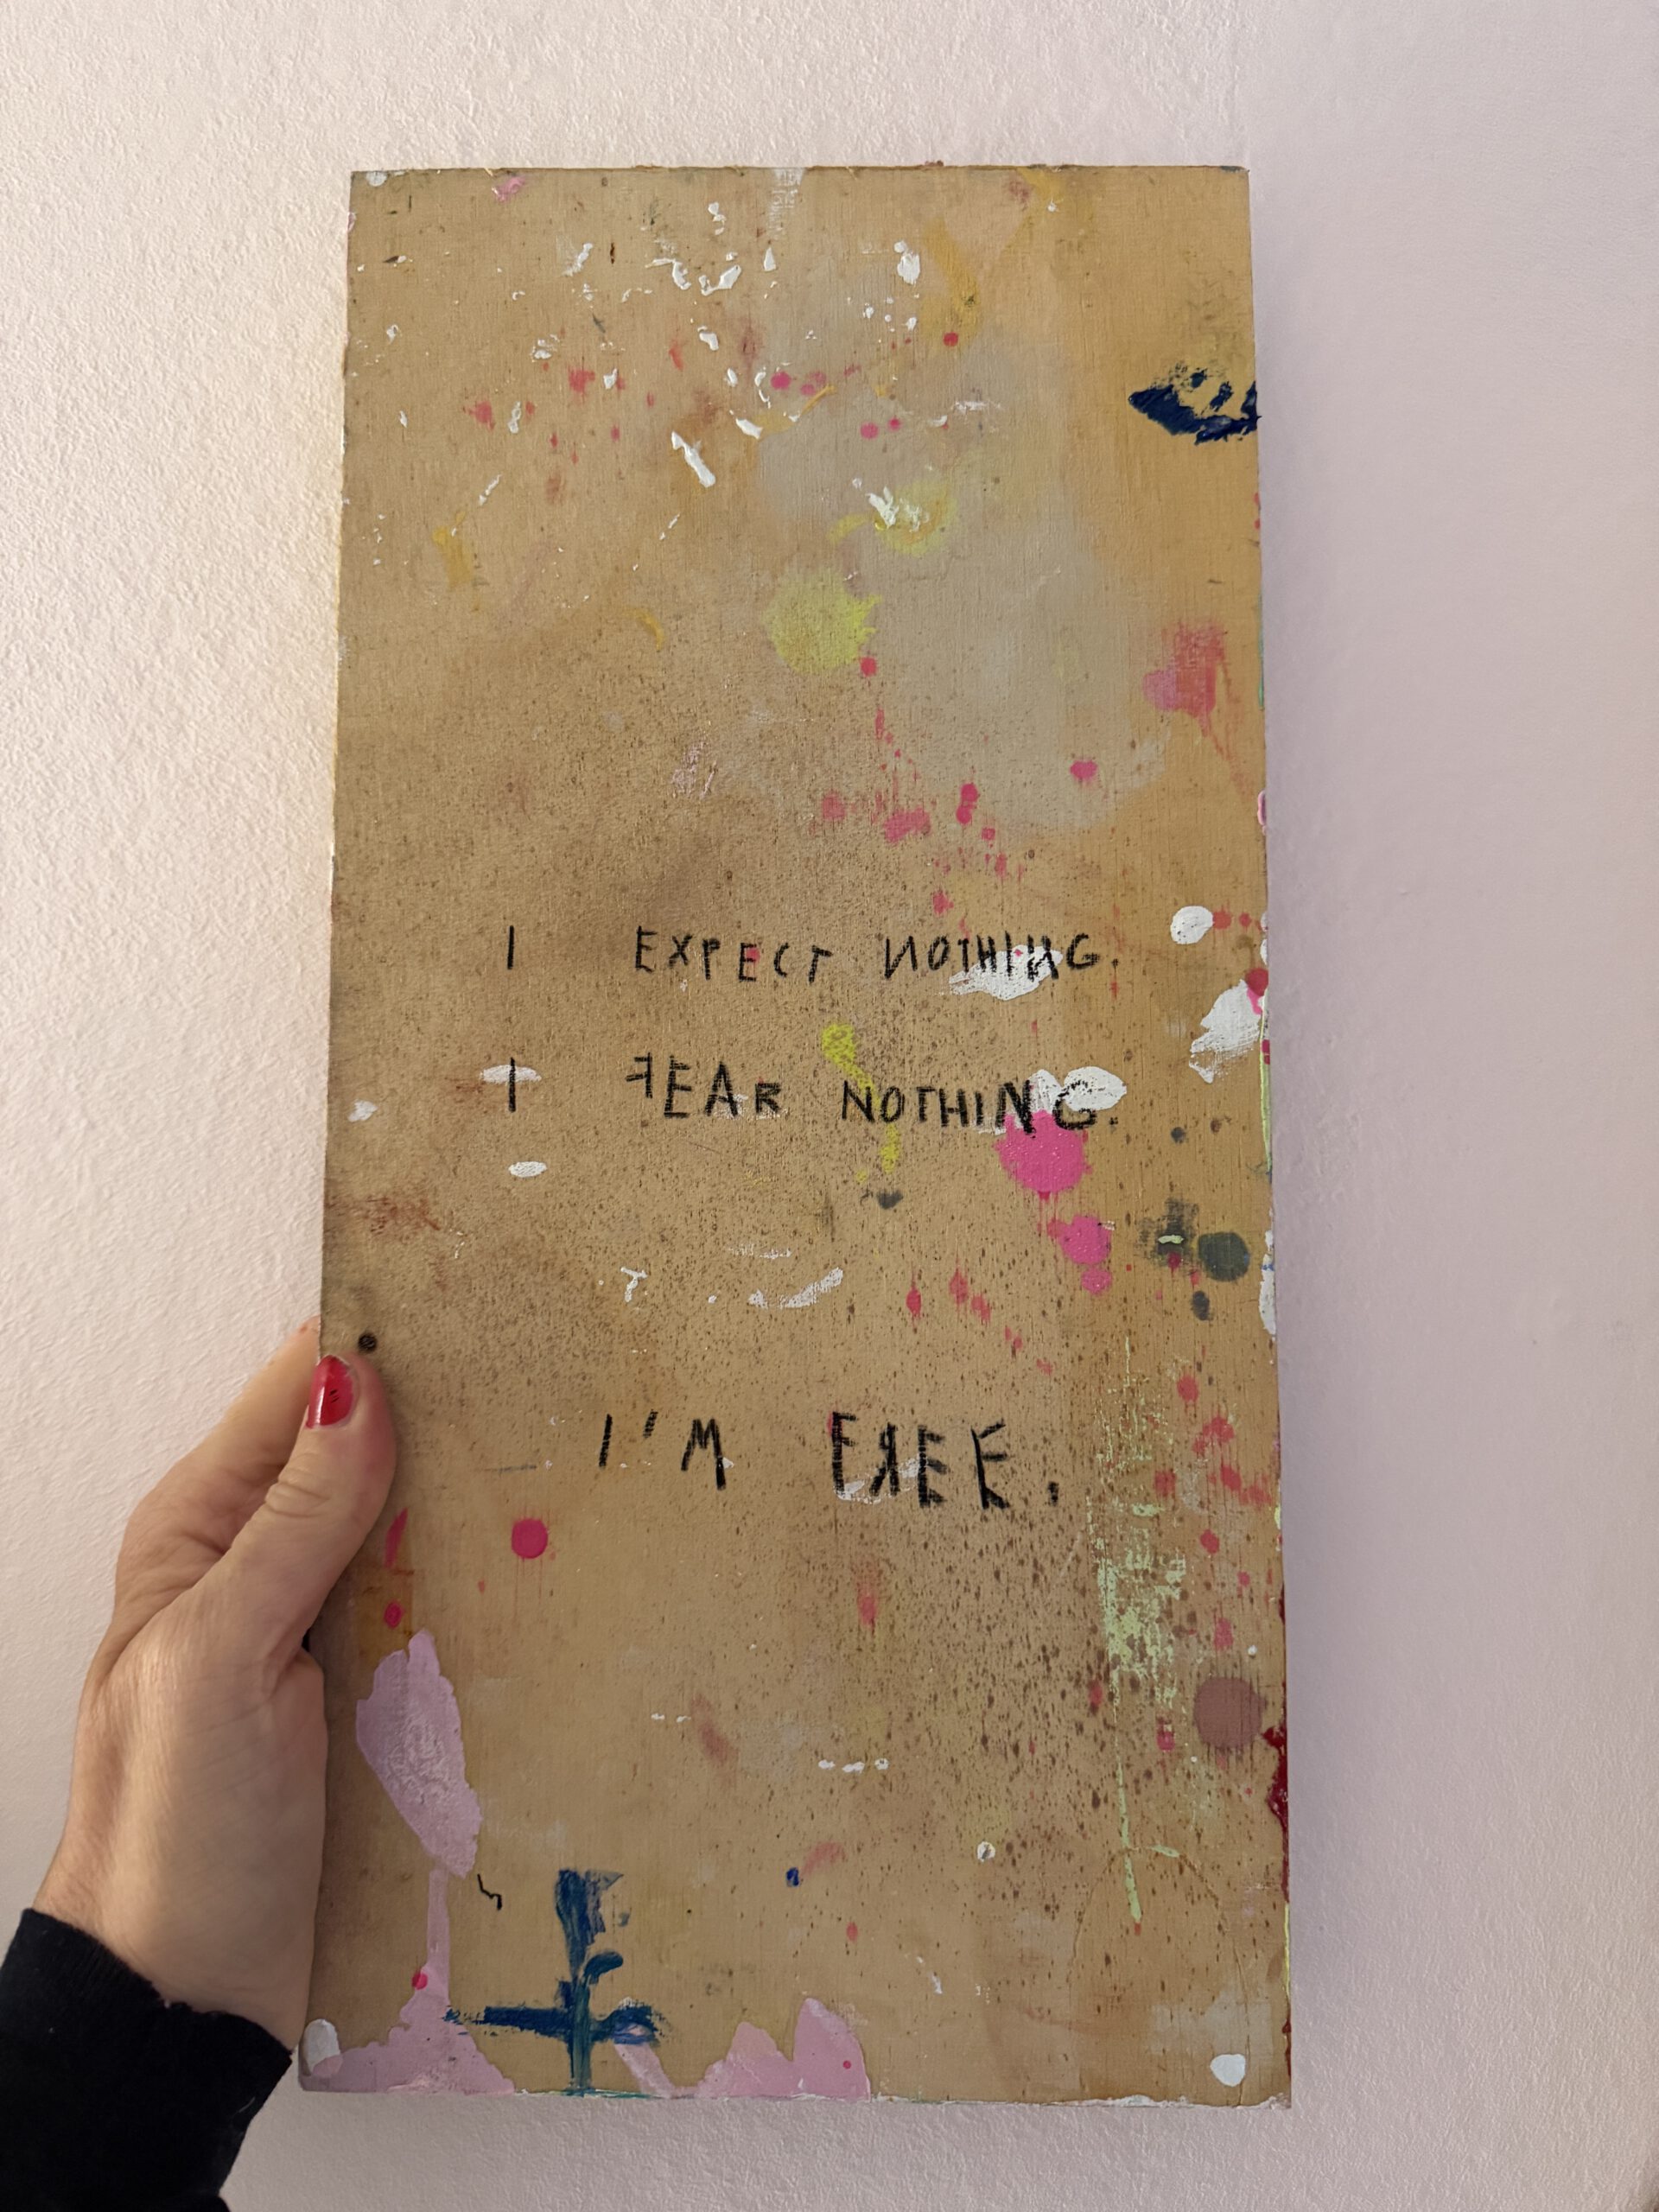 I EXPECT NOTHING.
I FEAR NOTHING.
I'M FREE.